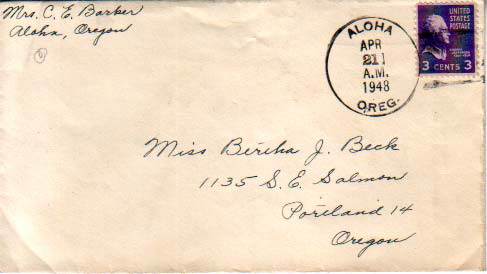 Mrs. C. E. Barker
Aloha, Oregon
ALOHA
APR
211
A.M.
1948
OREG.
UNITED
STATES
POSTAGE
3 CENTS 3
Miss Bertha J. Beck
1135 S. E. Salmon
Portland 14
Oregon